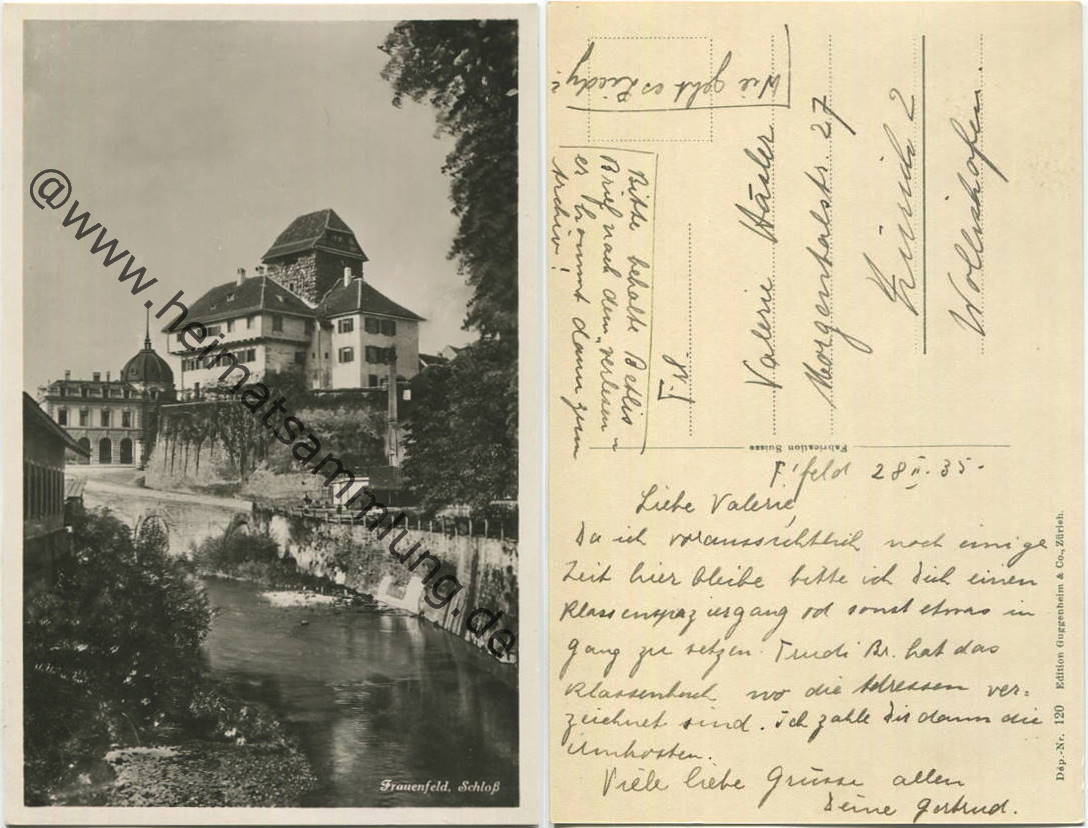 @www.heimatsammlung.de
Frauenfeld, Schloß
Wie geht es
Bitte behalte Bethlis
Brief nach dem „verlesen"
er kommt dann zum
Archiv!
F. H.
Valerie Häsler
Morgentalstr. 27
Zürich 2
Wollishofen
Fabrication Suisse
F'feld 28 II. 35.
Liebe Valerie,
Da ich voraussichtlich noch einige
Zeit hier bleibe bitte ich Dich einen
Klassenspaziergang od sonst etwas in
Gang zu setzen. Trudi Br. hat das
Klassenbuch wo die Adressen ver=
zeichnet sind. Ich zahle Dir dann die
Unkosten.
Viele liebe Grüsse allen
Deine Gertrud.
Dép.-Nr. 120 Edition Guggenheim & Co., Zürich.